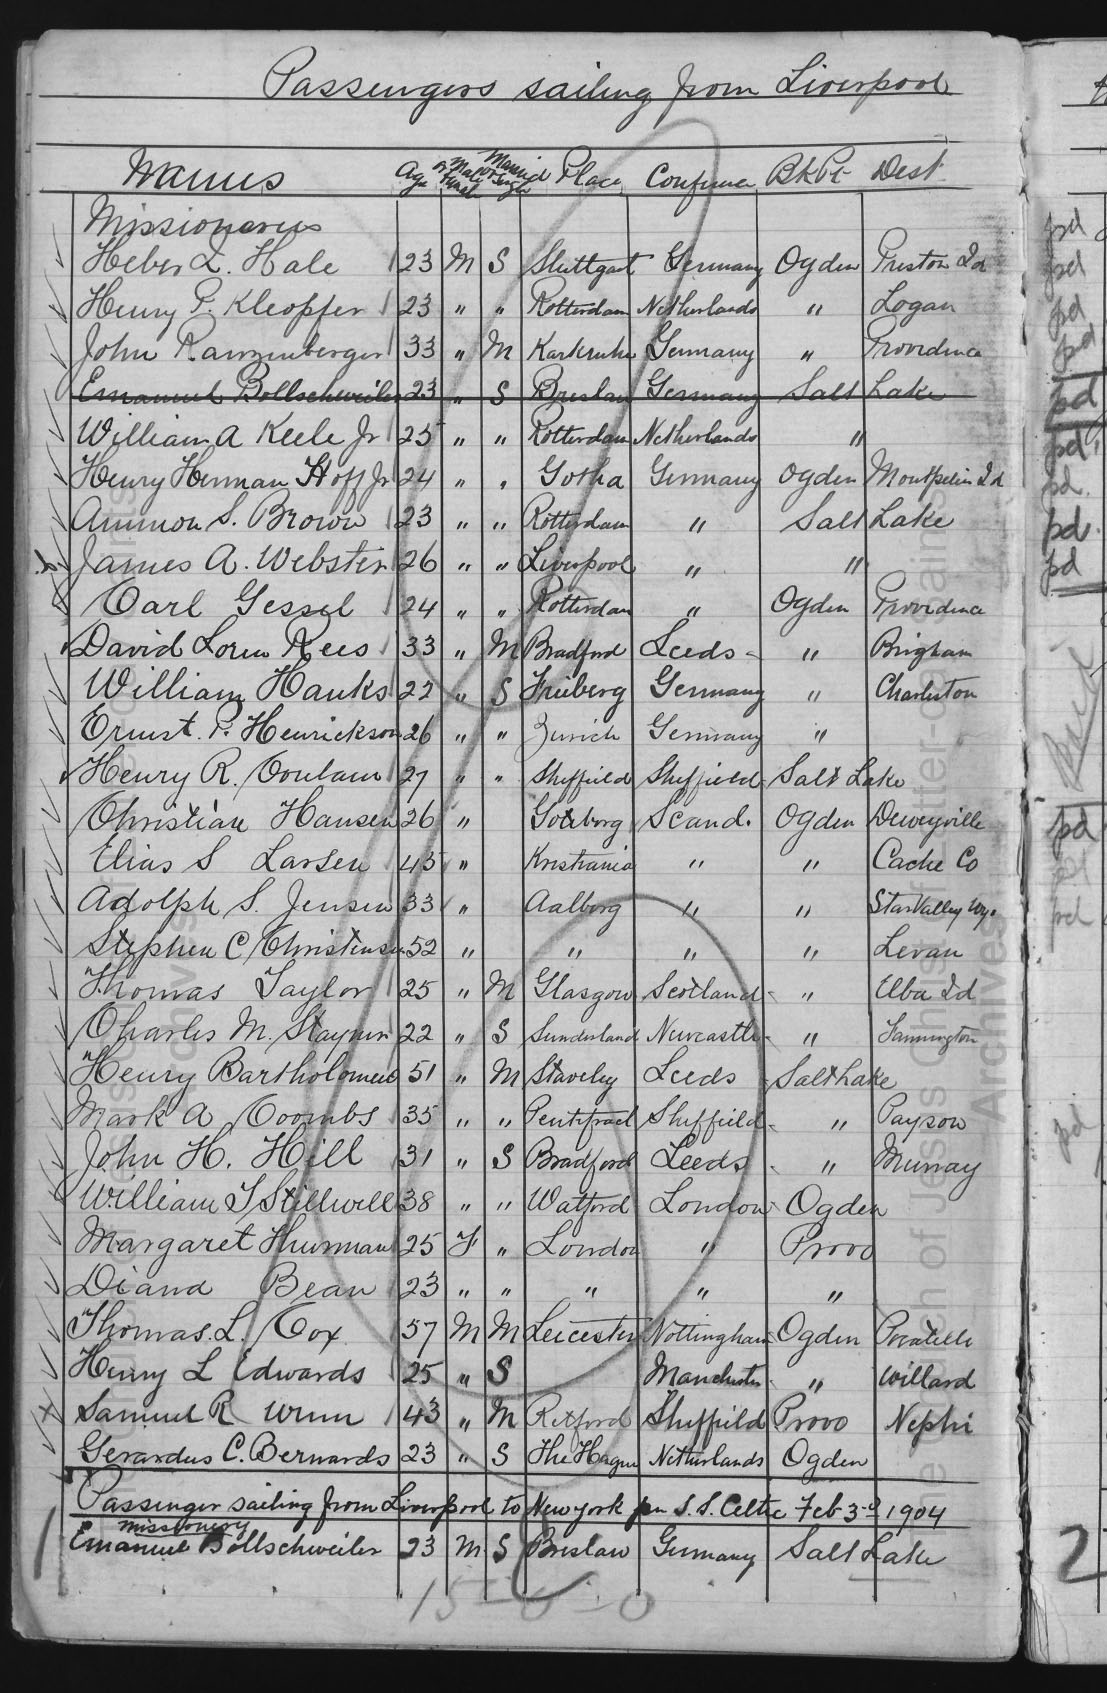 Passengers sailing from Liverpool
Names Age Male or Female Married or Single Place Conference Bk Pt Dest
Missionaries
Heber Q. Hale 23 M S Stuttgart Germany Ogden Preston Id
Henry P. Kleopfer 23 " " Rotterdam Netherlands " Logan
John Ranzenberger 33 " M Karlsruhe Germany " Providence
Emanuel Bollschweiler 23 " S Breslau Germany Salt Lake
William A Keele Jr 25 " " Rotterdam Netherlands "
Henry Herman Hoff Jr 24 " " Gotha Germany Ogden Montpelier Id
Ammon S. Brown 23 " " Rotterdam " Salt Lake
James A. Webster 26 " " Liverpool " "
Carl Gessel 24 " " Rotterdam " Ogden Providence
David Loren Rees 33 " M Bradford Leeds " Brigham
William Hanks 22 " S Freiberg Germany " Charleston
Ernest. P. Henrickson 26 " " Zurich Germany "
Henry R. Coulam 27 " " Sheffield Sheffield Salt Lake
Christian Hansen 26 " Goteborg Scand. Ogden Deweyville
Elias S Larsen 45 " Kristiania " " Cache Co
Adolph S. Jensen 33 " Aalborg " " Star Valley Wyo.
Stephen C Christensen 52 " " " " Levan
Thomas Taylor 25 " M Glasgow Scotland " Elba Id
Charles M. Stayner 22 " S Sunderland Newcastle " Farmington
Henry Bartholomew 51 " M Staveley Leeds Salt Lake
Mark A Coombs 35 " " Pontefract Sheffield " Payson
John H. Hill 31 " S Bradford Leeds " Murray
William T Stillwell 38 " " Watford London Ogden
Margaret Thurman 25 F " London " Provo
Diana Bean 23 " " " " "
Thomas. L. Cox 57 M M Leicester Nottingham Ogden Pocatello
Henry L Edwards 25 " S Manchester " Willard
Samuel R Winn 43 " M Retford Sheffield Provo Nephi
Gerardus C. Bernards 23 " S The Hague Netherlands Ogden
Passenger sailing from Liverpool to New York per S.S. Celtic Feb 3rd 1904
missionary
Emanuel Bollschweiler 23 M S Breslau Germany Salt Lake
15-0-0
pd
pd
pd
pd
pd
pd
pd.
pd.
pd
pd
pd
pd
2